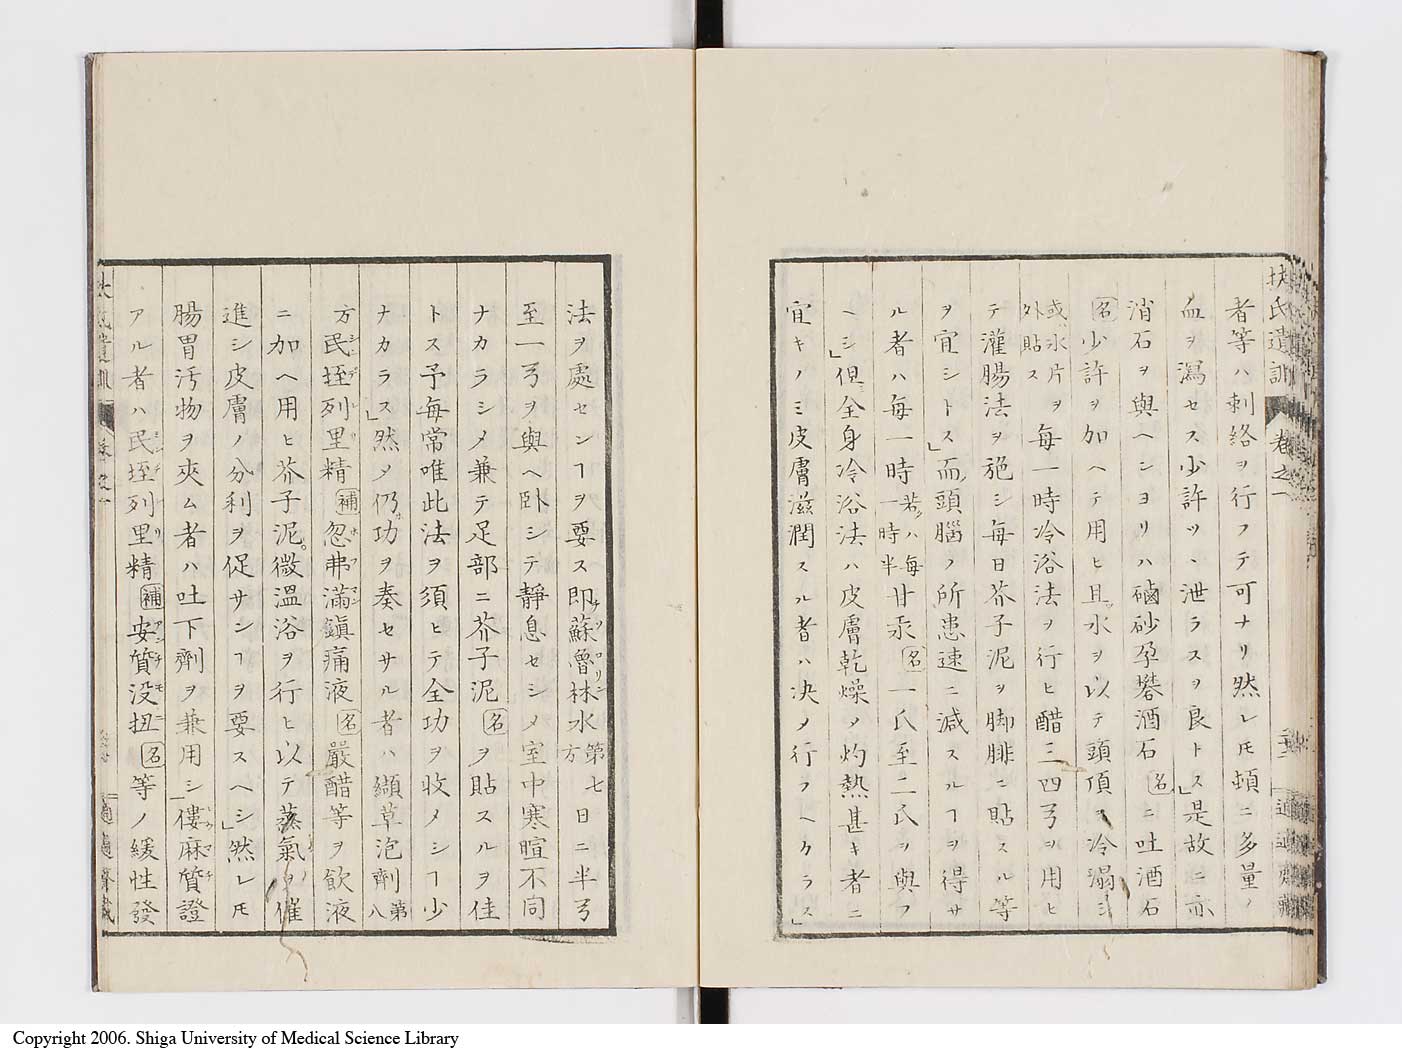 扶氏遺訓 卷之一
者等ハ刺絡ヲ行フテ可ナリ然レ𪜈頓ニ多量ノ
血ヲ瀉セス少許ツヽ泄ラスヲ良トス」是故ニ亦
消石ヲ與ヘンヨリハ磠砂孕礬酒石名ニ吐酒石
名少許ヲ加ヘテ用ヒ且ツ水ヲ以テ頭頂ヲ冷溻シ
或ハ氷片ヲ外貼ス每一時冷浴法ヲ行ヒ醋三四弓ヲ用ヒ
テ灌腸法ヲ施シ每日芥子泥ヲ脚腓ニ貼スル等
ヲ宜シトス」而ノ頭腦ノ所患速ニ減スルヿヲ得サ
ル者ハ每一時若クハ每一時半甘汞名一氏至二氏ヲ與フ
ヘシ」但全身冷浴法ハ皮膚乾燥ノ灼熱甚キ者ニ
宜キノミ皮膚滋潤スル者ハ决ノ行フヘカラス」
法ヲ處センヿヲ要ス即蘇魯林水第七方日ニ半弓
至一弓ヲ與ヘ卧シテ靜息セシメ室中寒暄不同
ナカラシメ兼テ足部ニ芥子泥名ヲ貼スルヲ佳
トス予每常唯此法ヲ須ヒテ全功ヲ收メシヿ少
ナカラス」然ノ仍功ヲ奏セサル者ハ纈草泡劑第八
方民垤列里精補忽弗滿鎭痛液名嚴醋等ヲ飲液
ニ加ヘ用ヒ芥子泥。微溫浴ヲ行ヒ以テ蒸氣ヲ催
進シ皮膚ノ分利ヲ促サンヿヲ要スヘシ」然レ𪜈
腸胃汚物ヲ夾ム者ハ吐下劑ヲ兼用シ僂麻質證
アル者ハ民垤列里精補安質没扭名等ノ緩性發